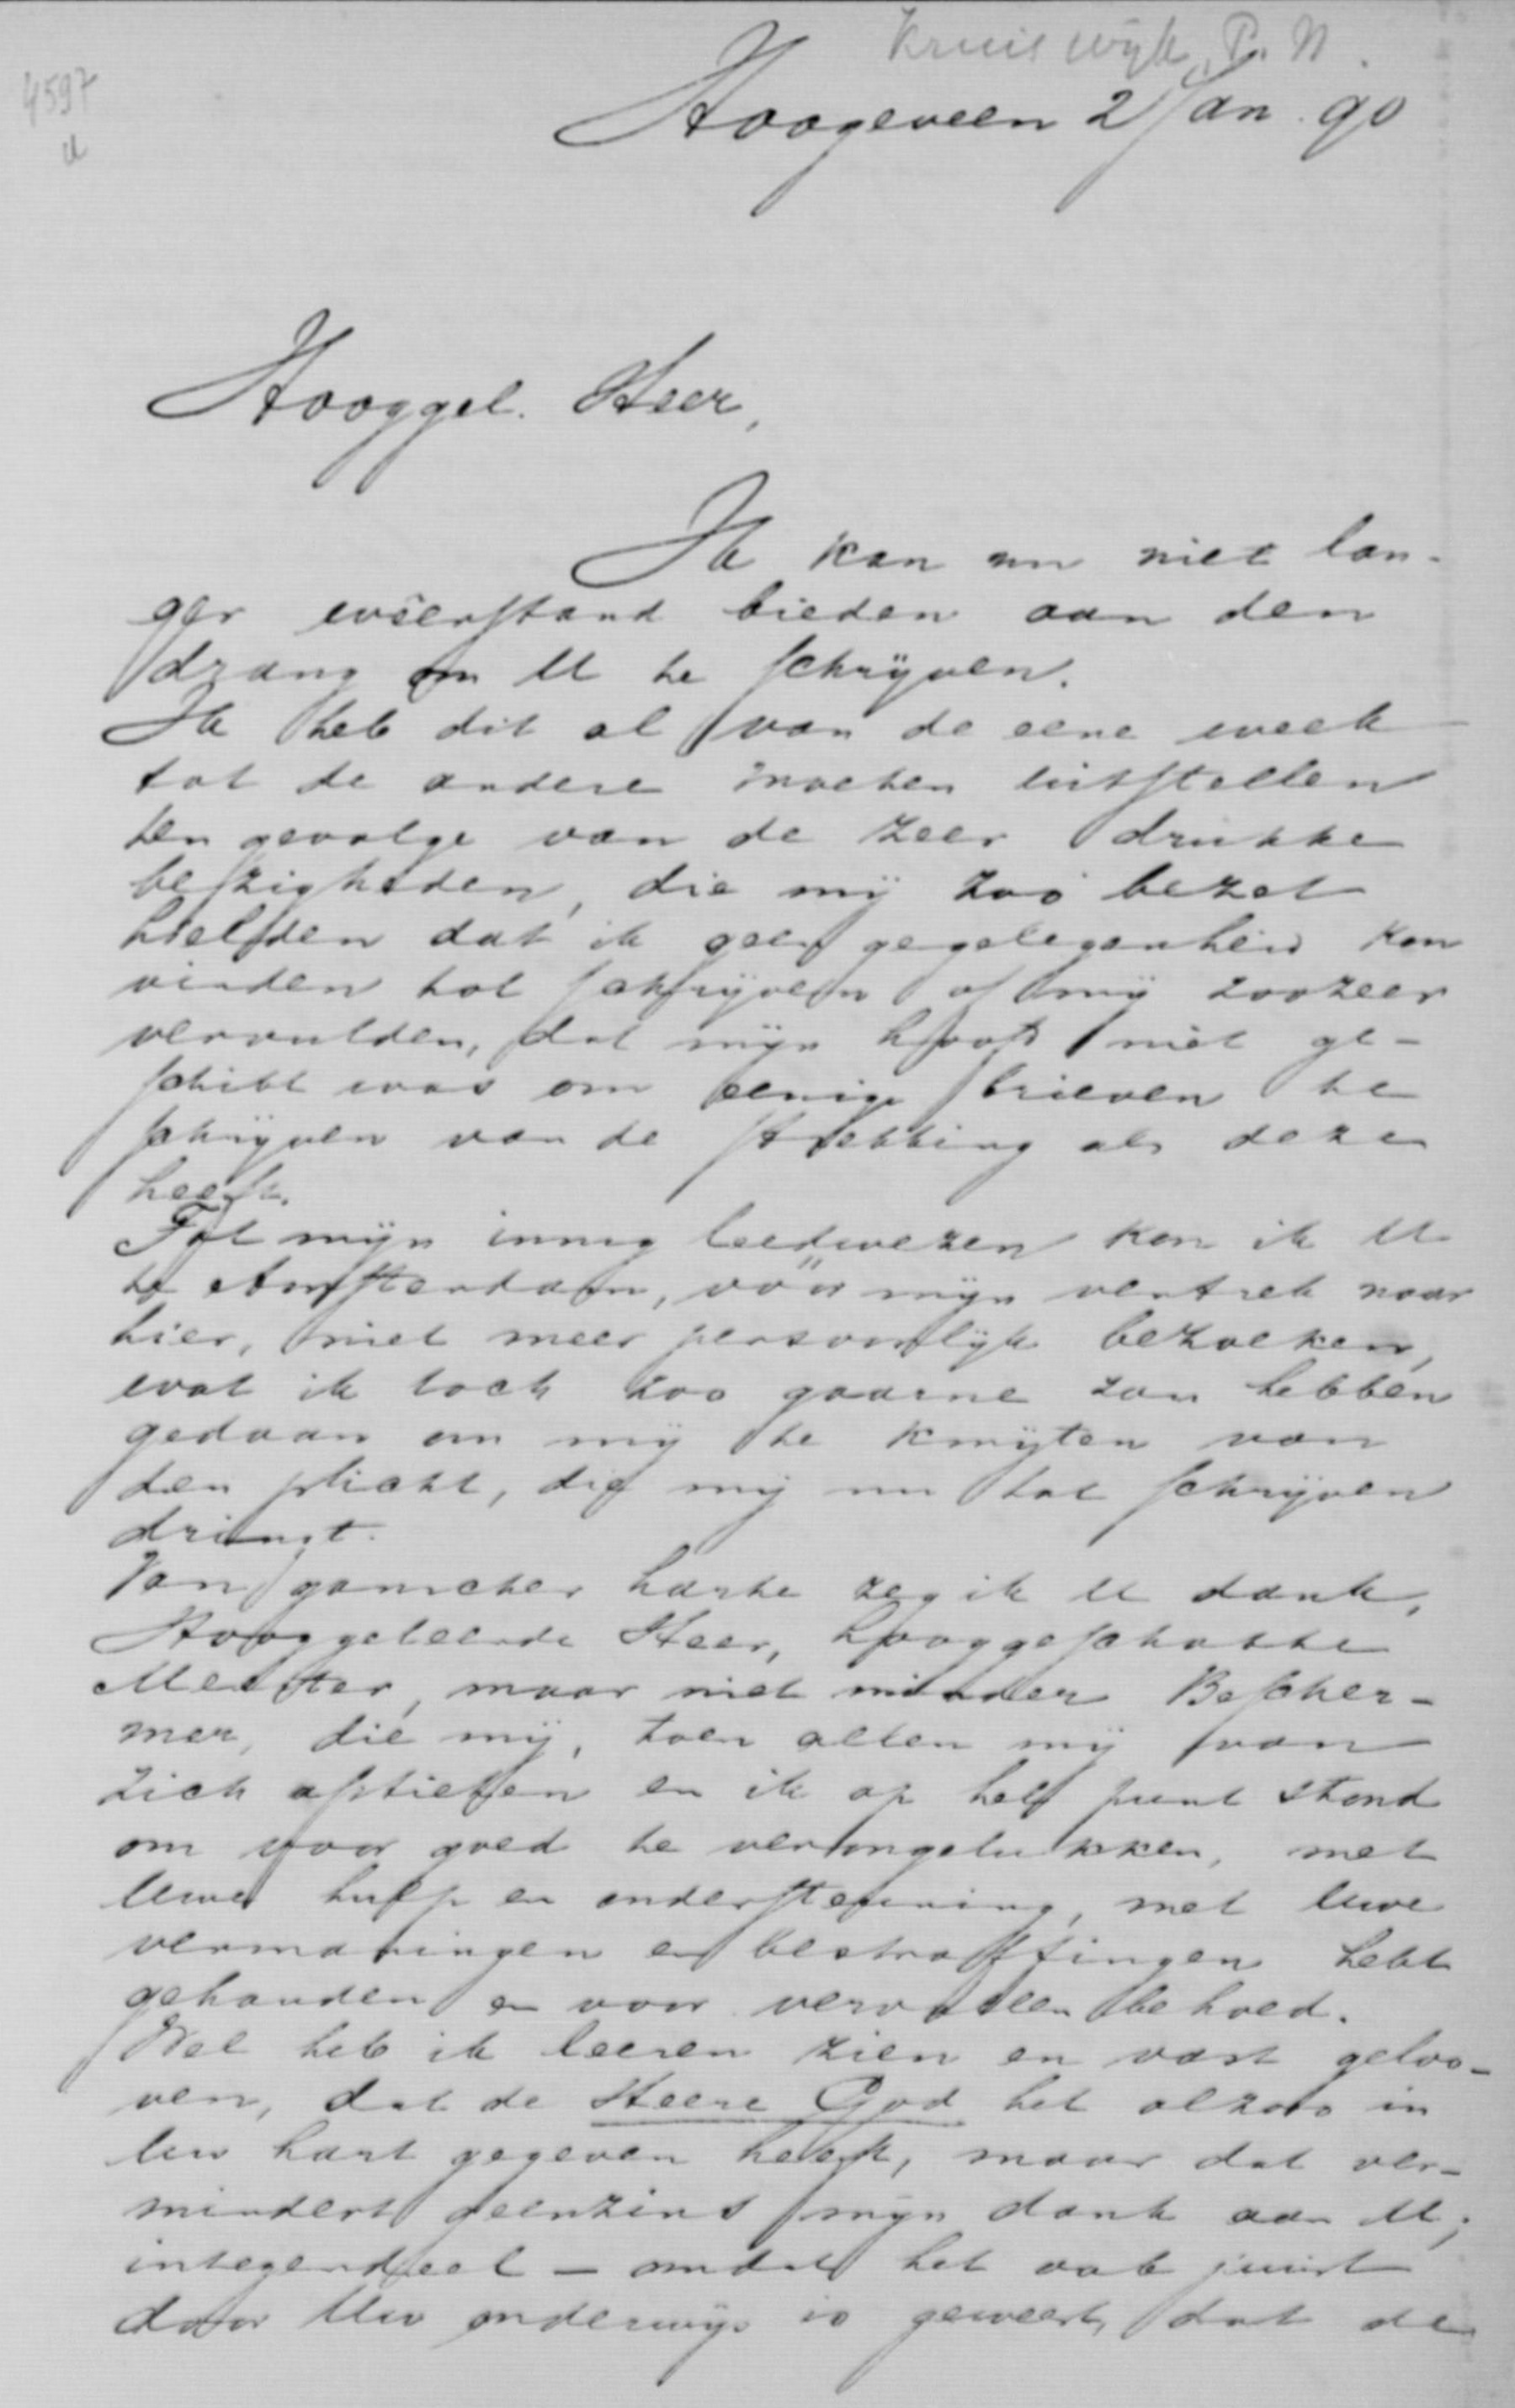 Kruiswijk, P. N.
4597
a
Hoogeveen 2 Jan. 90
Hooggel. Heer,
Ik kan nu niet lan-
ger weêrstand bieden aan den
drang om U te schrijven.
Ik heb dit al van de eene week
tot de andere moeten uitstellen
ten gevolge van de zeer drukke
bezigheden, die mij zoó bezet
hielden dat ik geen gegelegenheid kon
vinden tot schrijven of mij zoozeer
vervulden, dat mijn hoofd niet ge-
schikt was om eenige brieven te
schrijven van de strekking als deze
heeft.
Tot mijn innig leedwezen kon ik U
te Amsterdam, vóór mijn vertrek naar
hier, niet meer persoonlijk bezoeken,
wat ik toch zoo gaarne zou hebben
gedaan om mij te kwijten van
den plicht, die mij nu tot schrijven
dringt.
Van ganscher harte zeg ik U dank,
Hooggeleerde Heer, hooggeschatte
Meester, maar niet minder Bescher-
mer, die mij, toen allen mij van
zich afstieten en ik op het punt stond
om voor goed te verongelukken, met
Uwe hulp en ondersteuning, met Uwe
vermaningen en bestraffingen hebt
gehouden en voor vervallen behoed.
Wel heb ik leeren zien en vast geloo-
ven, dat de Heere God het alzoo in
Uw hart gegeven heeft, maar dat ver-
mindert geenzins mijn dank aan U;
integendeel – omdat het ook juist
door Uw onderwijs is geweest, dat de